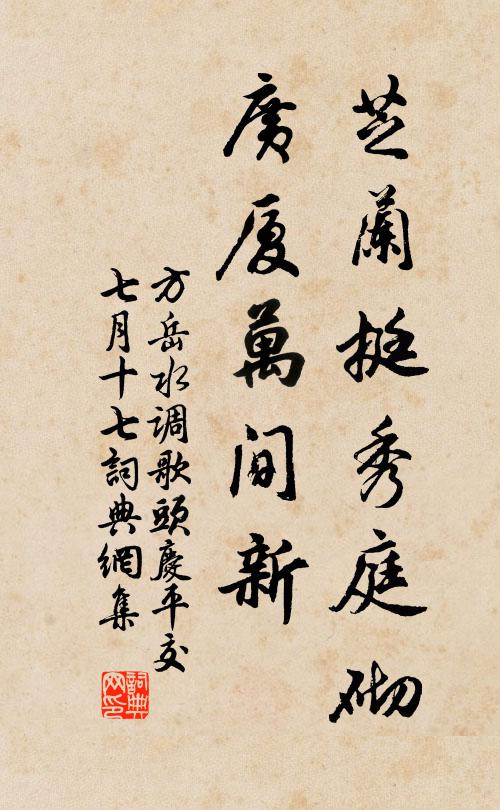 芝蘭挺秀庭砌
廣厦萬間新
方岳水调歌頭慶平交
七月十七詞典網集
詞典
网印